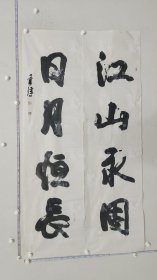 江山永固
日月恒長